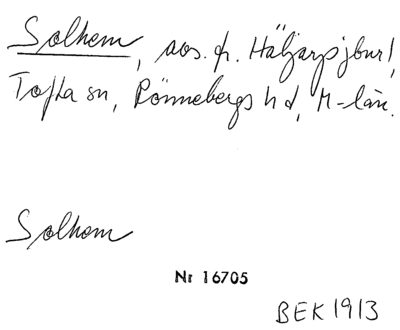 Solhem, avs. fr. Häljarpsjburl,
Tofta sn, Rönnebergs hd, M-län.
Solhem
Nr 16705
BEK 1913